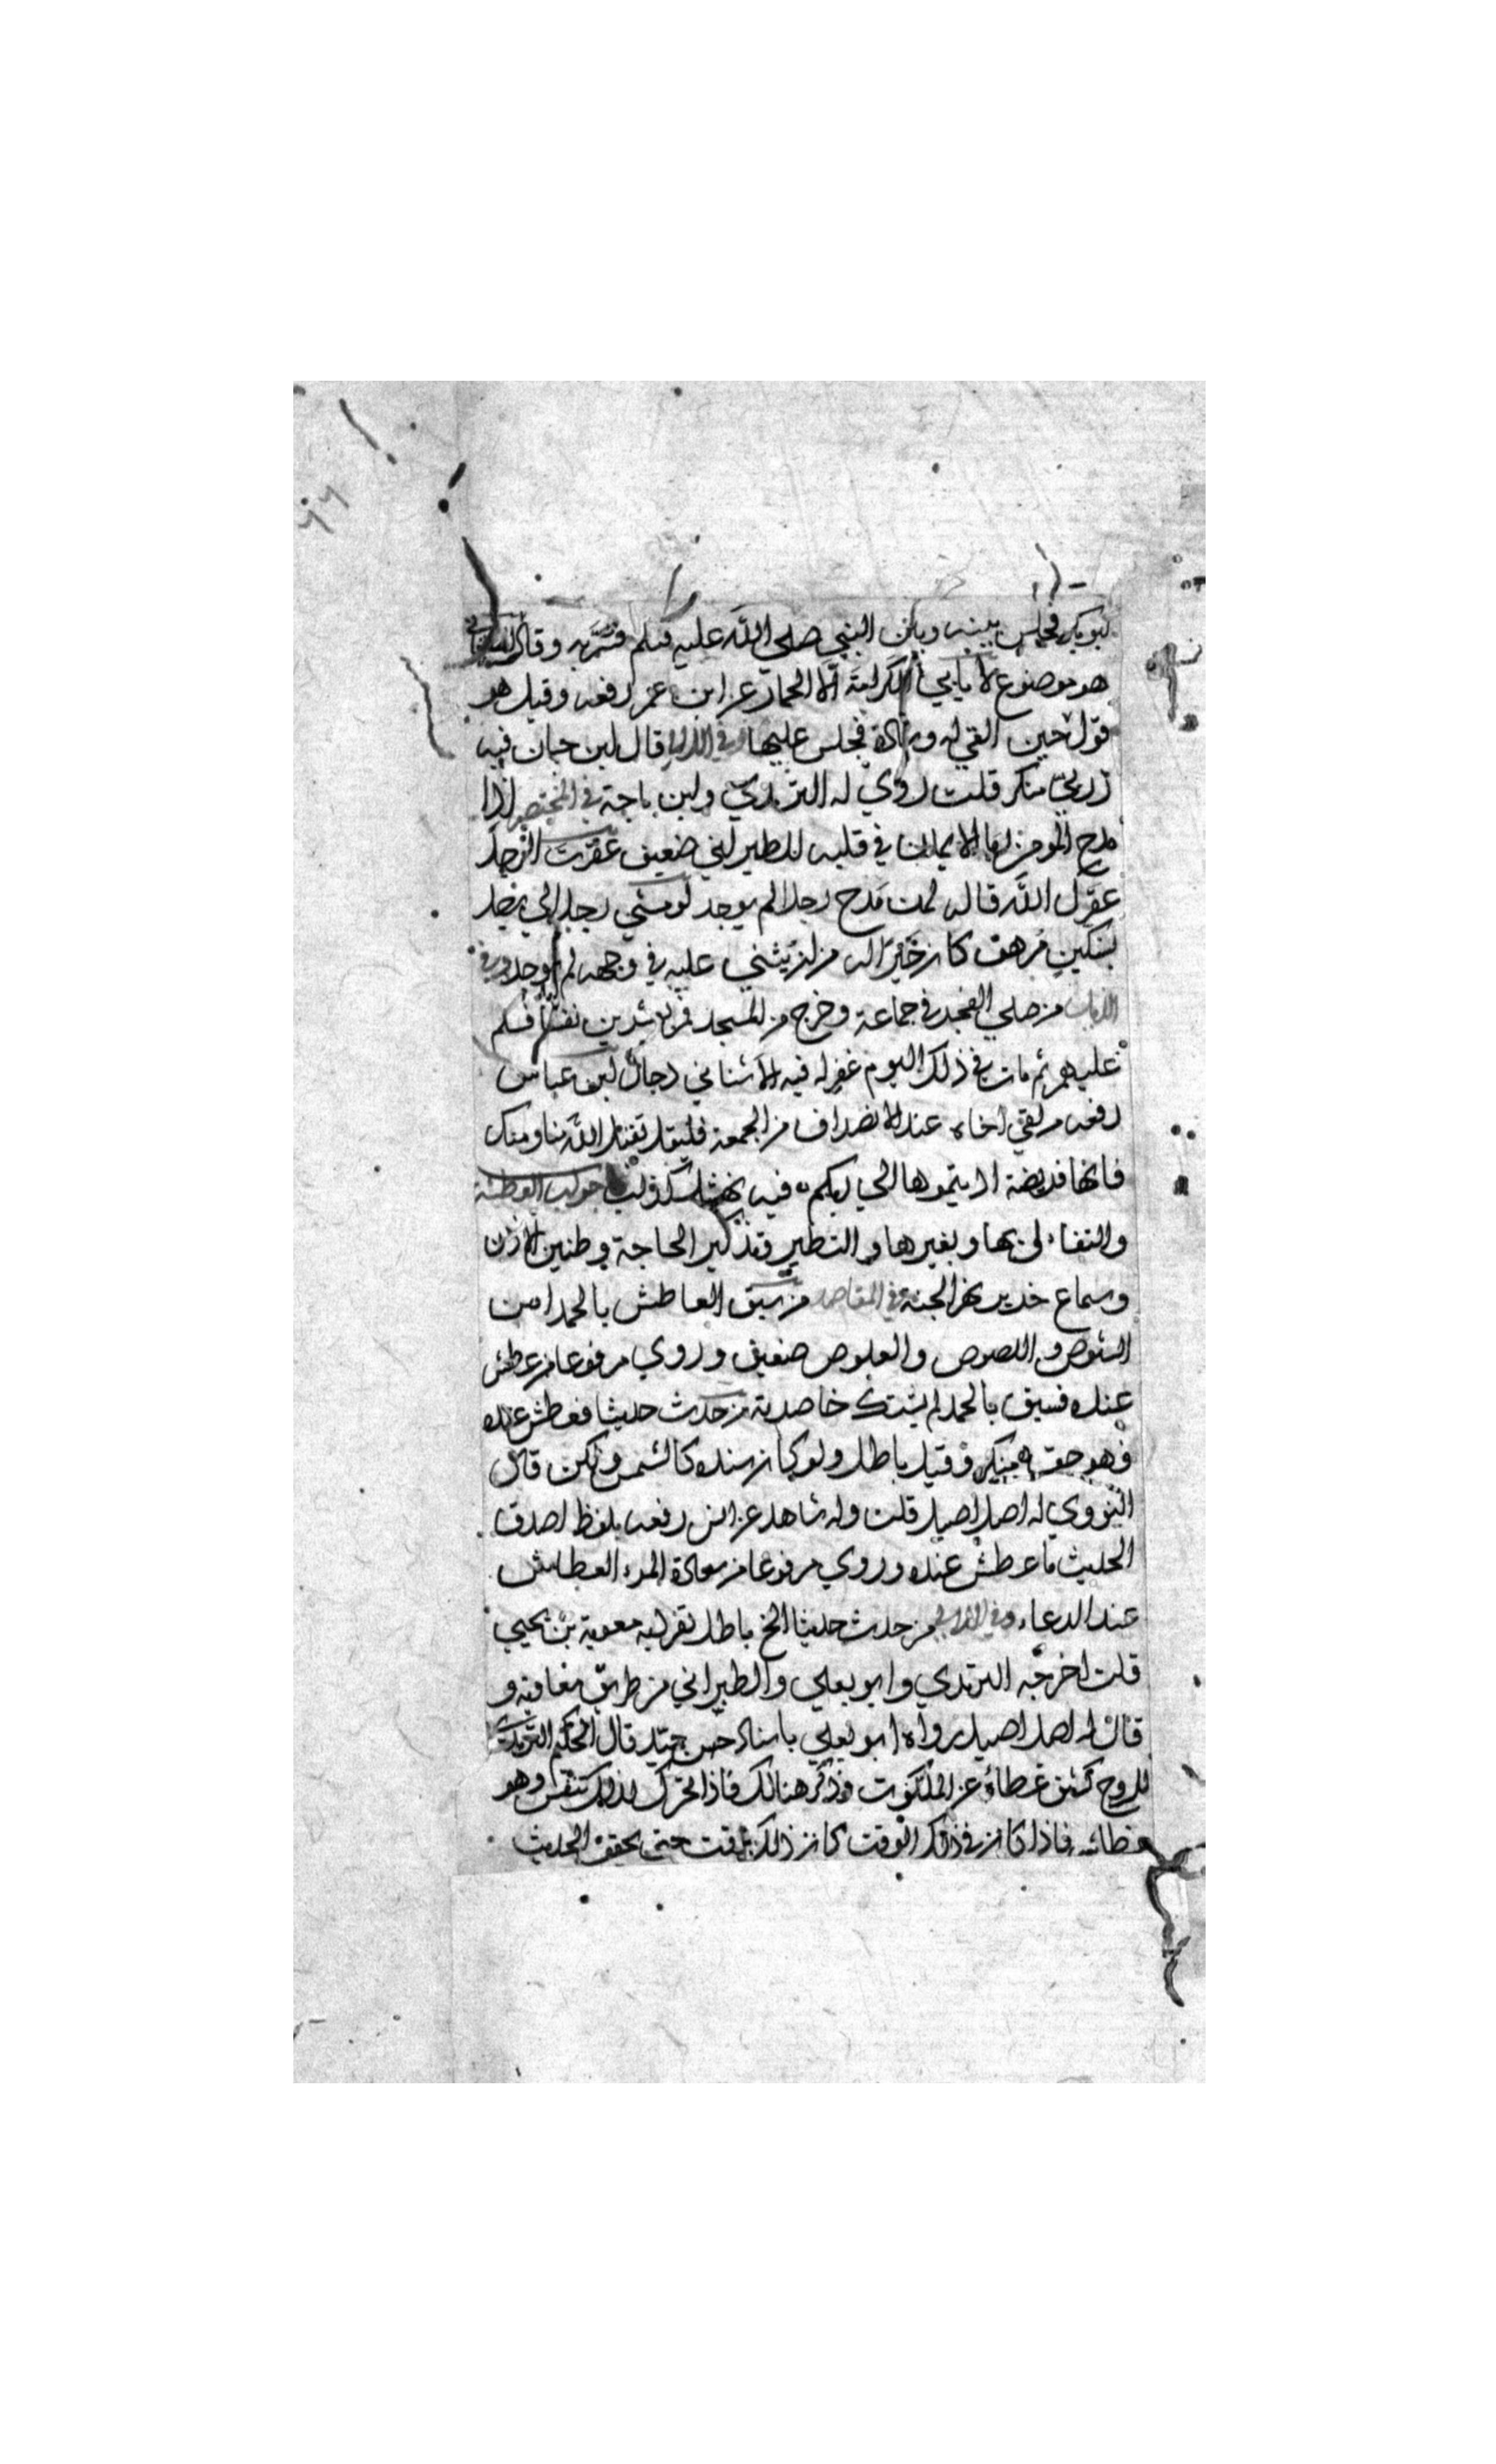 ابو بكر فجلس بينه وبين النبي صلى الله عليه وسلم فسر به وقال
هو موضوع لا يابي الكرامة الا الحمار عن ابن عمر رفعه وقيل هو
قول حين القي له وسادة فجلس عليها وفي الذيل قال ابن حبان فيه
زربي منكر قلت روي له الترمذي وابن ماجة في المختصر اذا
مدح المومن ربا الايمان في قلبه للطبراني ضعيف عقرت الرجل
عقرك الله قاله لمن مدح رجلا لم يوجد لو مشي رجل الي رجل
بسكين مرهف كان خيرا له من ان يثني عليه في وجهه لم يوجد وفي
الذيل من صلي الفجر في جماعة وخرج من المسجد فمر بعشرين نفسا فسلم
عليهم ثم مات في ذلك اليوم غفر له فيه الاشناني دجال ابن عباس
رفعه من لقي اخاه عند الانصراف من الجمعة فليقل تقبل الله منا ومنك
فانها فريضة اديتموها الي ربكم فيه نهشل كذاب العطسة
والتفاءل بها وبغيرها والتطير وتذكير الحاجة وطنين الاذن
وسماع خرير نهر الجنة في المقاصد من سبق العاطش بالحمد امن
الشوص واللصوص والعلوص ضعيف وروي مرفوعا من عطش
عنده فسبق بالحمد لم يشتك خاصرته من حدث حديثا فعطش عنده
فهو حق منكر وقيل باطل ولو كان سنده كالشمس ولكن قال
النووي له اصل اصيل قلت وله شاهد عن انس رفعه بلفظ اصدق
الحديث ما عطش عنده وروي مرفوعا من سعادة المرء العطاش
عند الدعاء وفي اللآلي من حدث حديثا الخ باطل تفرد به معوية بن يحيي
قلت اخرجه الترمذي وابو يعلي والطبراني من طريق معاوية و
قال له اصل اصيل رواه ابو يعلي باسناد حسن جيد قال الحكيم الترمذي
للروح كشف غطاؤه عن الملكوت وذكر هنالك فاذا تحرك لذلك تنفس وهو
عطاسه فاذا كان في ذلك الوقت كان ذلك وقت حتي يحقق الحديث